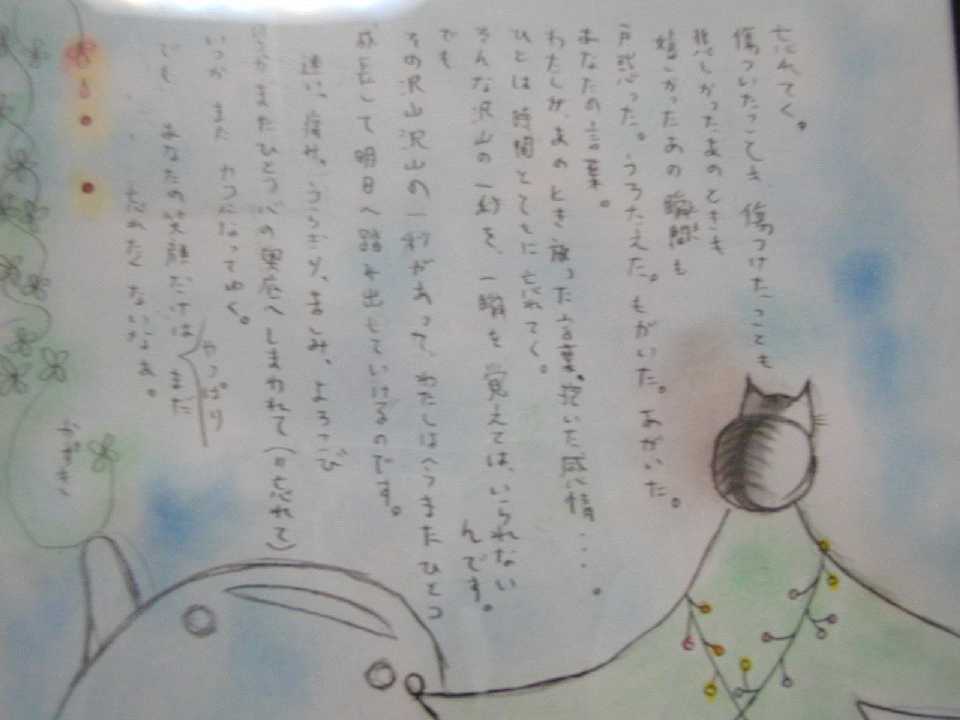 忘れてく。
傷ついたってき、傷つけたってことも
悲しかったあのときも
嬉しかったあの瞬間も
戸惑った。うろたえた。もがいた。あがいた。
あなたの言葉。
わたしが、あのとき放った言葉。抱いた感情・・・。
ひとは時間とともに忘れてく。
そんな沢山の一秒を、一瞬を覚えては、いられないんです。
でも
その沢山沢山の一秒があって、わたしは一つまたひとつ
成長して明日へ踏み出していけるのです。
迷い、痛み、うらぎり、ましみ、よろこび
またひとつ心の奥底へしまわれて(=忘れて)
いつか また カタになってゆく。
でも あなたの笑顔だけは まだ
やっぱり
・・忘れたくないなぁ。
かずき